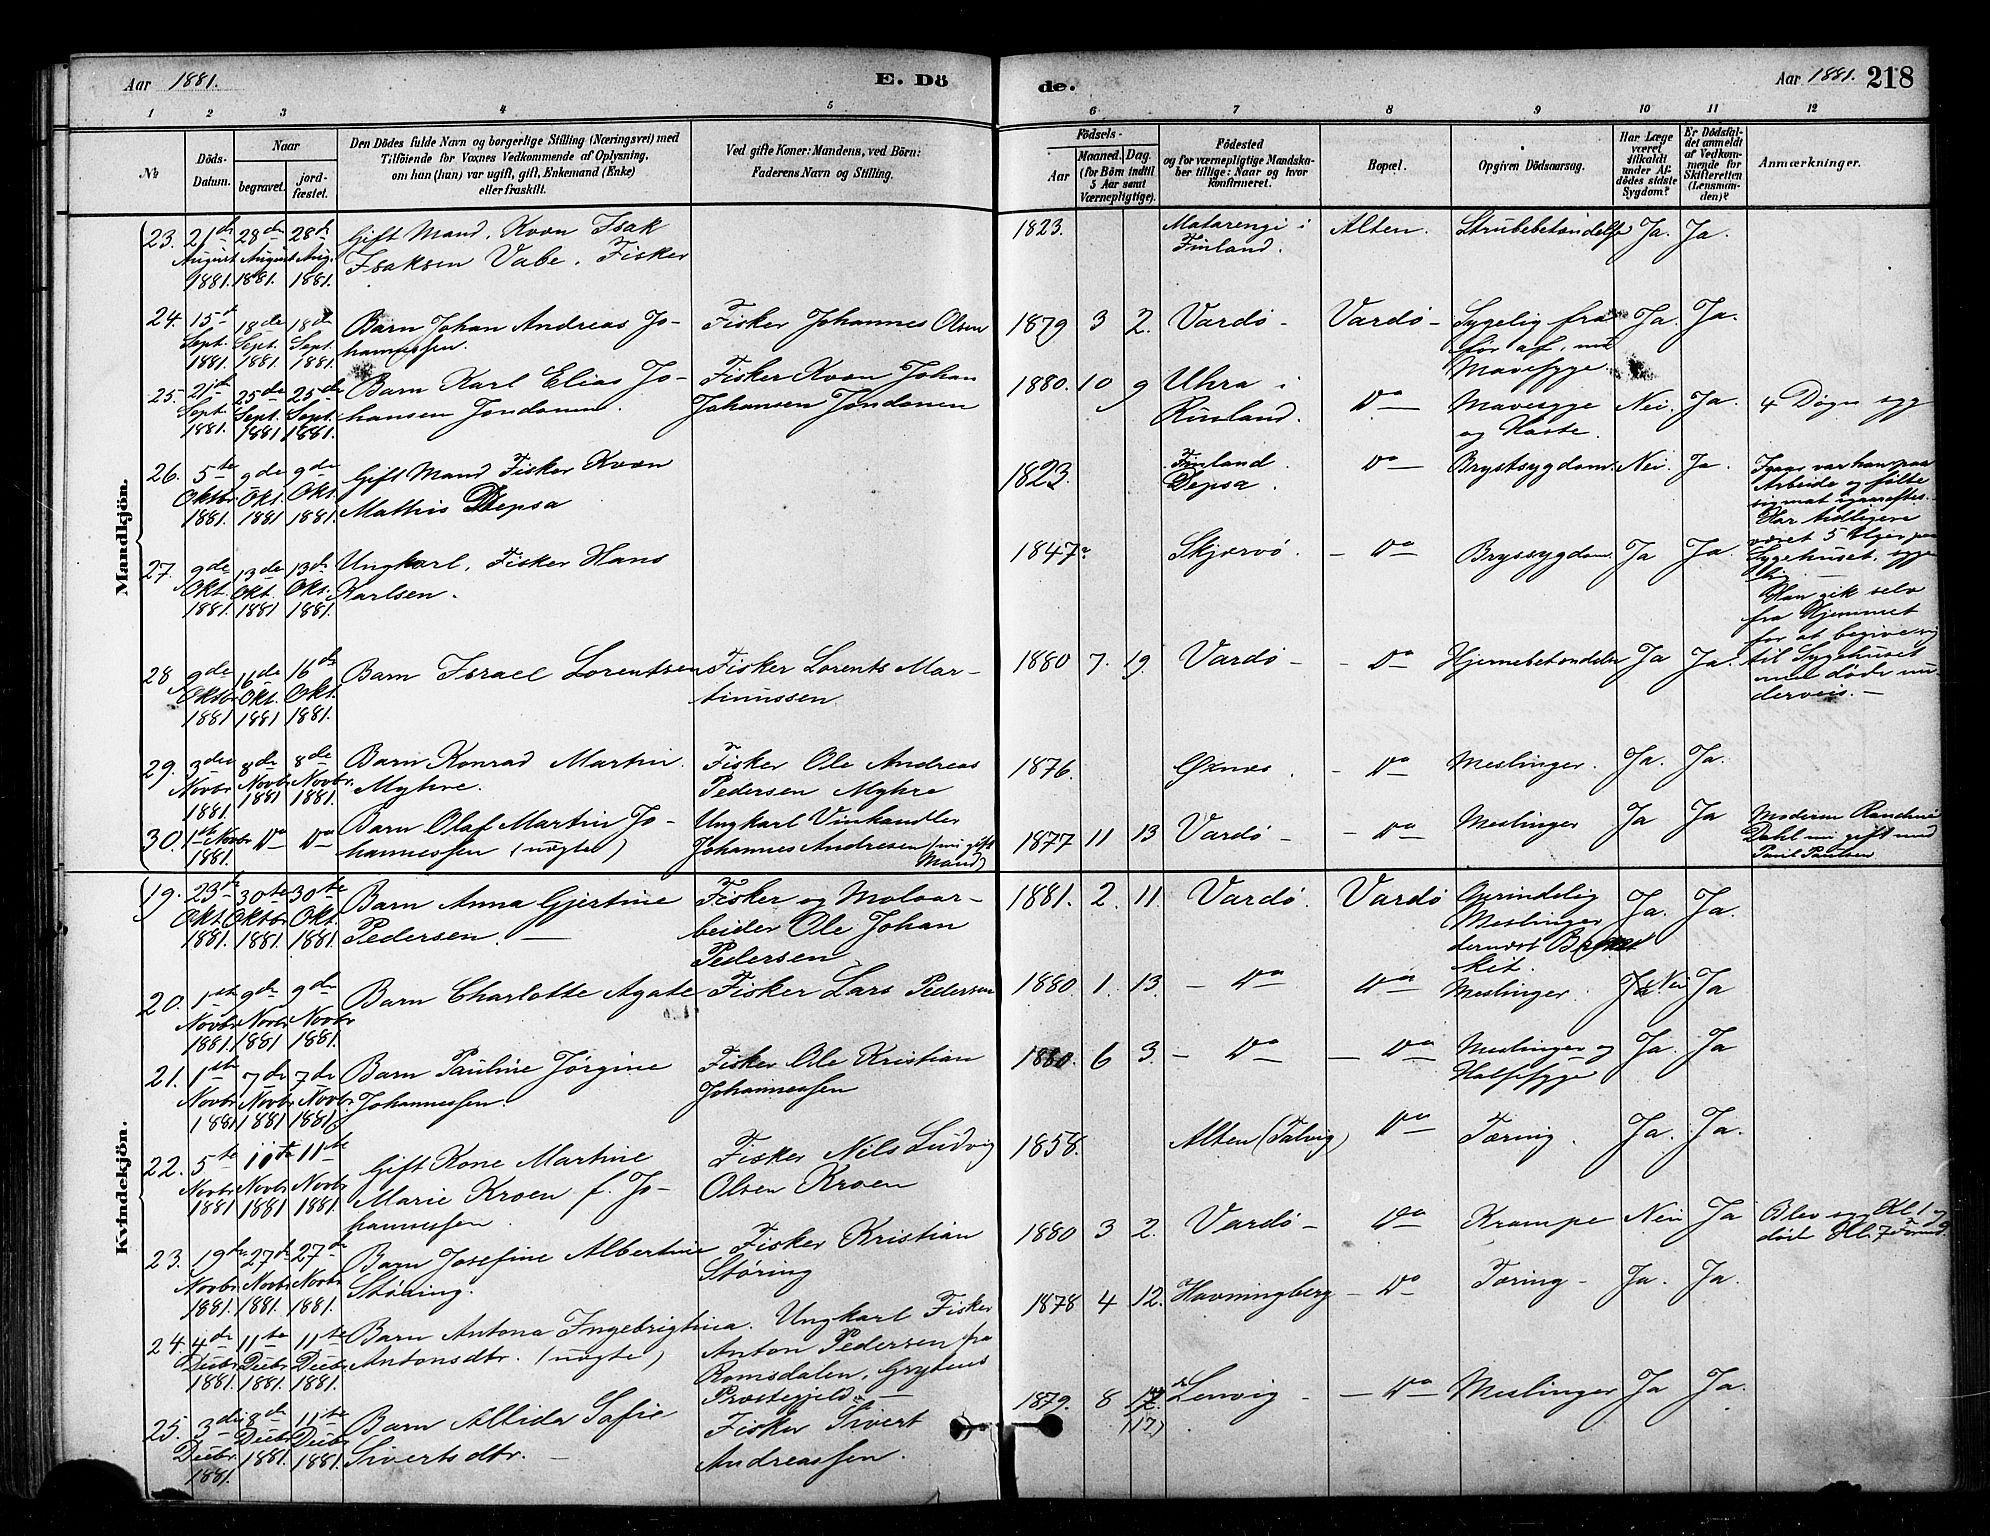 Aar 1881. E. Dö de. Aar 1881. 218
1 2 3 4 5 6 7 8 9 10 11 12
№ Döds-Datum. Naar begravet. jordfæstet. Den Dödes fulde Navn og borgerlige Stilling (Næringsvei) med Tilföiende for Voxnes Vedkommende af Oplysning, om han (hun) var ugift, gift, Enkemand (Enke) eller fraskilt. Ved gifte Koner: Mandens, ved Börn: Faderens Navn og Stilling. Födsels- Aar Maaned. Dag. (for Börn indtil 5 Aar samt Værnepligtige). Födested og for værnepligtige Mandskaber tillige: Naar og hvor konfirmeret. Bopæl. Opgiven Dödsaarsag. Har Læge været tilkaldt under Afdödes sidste Sygdom? Er Dödsfaldet anmeldt af Vedkommende for Skifteretten (Lensmanden)? Anmærkninger.
Mandkjön.
23. 21de August 1881. 28de August 1881. 28de Aug. 1881. Gift Mand, Kvæn Isak Isaksen Vabe. Fisker 1823. Matarengi i Finland. Alten. Strubebetændelse Ja. Ja.
24. 15de Sept. 1881. 18de Sept. 1881. 18de Sept. 1881. Barn Johan Andreas Johannessen. Fisker Johannes Olsen 1879 3 2. Vardö Vardö Sygelig fra før af, Mavesyge. Ja. Ja.
25. 21de Sept. 1881. 25de Sept. 1881 25de Sept. 1881. Barn Karl Elias Johansen Jondanen. Fisker Kvæn Johan Johansen Jondanen 1880. 10 9 Uhra i Rusland. Do Mavesyge og Hoste. Nei. Ja. 4 Døgn syg
26. 5te Oktbr 1881. 9de Okt. 1881 9de Okt. 1881. Gift Mand Fisker Kvæn Mathis Depsa 1823. Finland Depsa. Do Brystsygdom. Nei. Ja. Igaar var han paa Arbeide og følte sig mat igaaraftes. Har tidligere været 5 Uger paa Sygehuset.
27. 9de Okt. 1881. 13de Okt. 1881 13de Okt. 1881. Ungkarl, Fisker Hans Karlsen. 1847. Skjervö. Do Brystsygdom Ja Ja. Han gik selv fra Hjemmet for at begive sig til Sygehuset men døde underveis.
28 9de Oktbr 1881 16de Okt. 1881 16de Okt. 1881. Barn Israel Lorentsen Fisker Lorents Martinussen 1880 7. 19. Vardö Do Hjernebetændelse Ja Ja.
29. 3die Novbr 1881. 8de Novbr 1881 8de Novbr. 1881. Barn Konrad Martin Myhre. Fisker Ole Andreas Pedersen Myhre 1876. Øxnes. Do Meslinger. Ja. Ja.
30. 1ste Novbr 1881. Do Do Barn Olaf Martin Johannessen (uægte) Ungkarl Vinhandler Johannes Andresen (nu gift Mand) 1877 11 13 Vardö Do Meslinger Ja Ja Moderen Dahl nu gift med Paul Paulsen
Kvindekjön.
19. 23de Okt. 1881. 30te Oktbr 1881. 30te Okt. 1881. Barn Anna Gjertine Pedersen. Fisker og Moloarbeider Ole Johan Pedersen 1881. 2. 11. Vardö. Vardö Oprindelig Meslinger dernæst Ja. Ja.
20. 1ste Novbr 1881. 9de Novbr. 1881 9de Novbr 1881. Barn Charlotte Agate Fisker Lars Pedersen 1880. 1. 13. Do Do Meslinger. Nei Ja
21. 1ste Novbr. 1881 7de Novbr 1881 7de Novbr 1881. Barn Pauline Jørgine Johannessen. Fisker Ole Kristian Johannessen 1880. 6 3. Do Do Meslinger og Halsesyge Ja. Ja
22. 5te Novbr 1881 11te Novbr 1881 11te Novbr. 1881. Gift Kone Martine Marie Kroen f. Johannessen. Fisker Nils Ludvig Olsen Kroen 1858. Alten (Talvig) Do Tæring. Ja. Ja.
23. 19de Novbr 1881. 27de Novbr 1881. 27de Novbr 1881. Barn Josefine Albertine Støring. Fisker Kristian Støring 1880 3 2. Vardö Do Krampe Nei Ja Blev syg Kl. 1 og døde Kl. 7 Formd.
24. 4de Decbr 1881. 11te Decbr 1881. 11te Decbr. 1881. Barn Antona Ingebrigtine Antonsdtr. (uægte) Ungkarl Fisker Anton Pedersen fra Romsdalen, Grytens Præstegjeld 1878 4 12. Havningberg Do Tæring Ja. Ja.
25. 3die Decbr. 1881. 8de Decbr 1881. 11te Decbr. 1881. Barn Altida Sofie Sivertsdtr. Fisker Sivert Andreassen. 1879. 8 17. (17) Lenvig Do Meslinger Ja Ja.